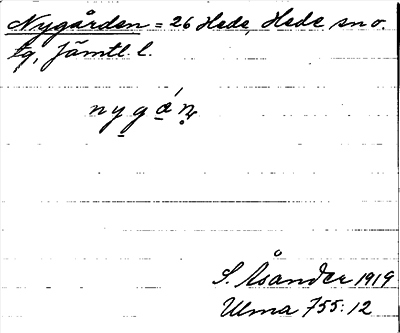 Nygården = 26 Hede, Hede sn o.
tg, Jämtl. l.
nygǻṇ
S. Åsander 1919
Ulma 755:12